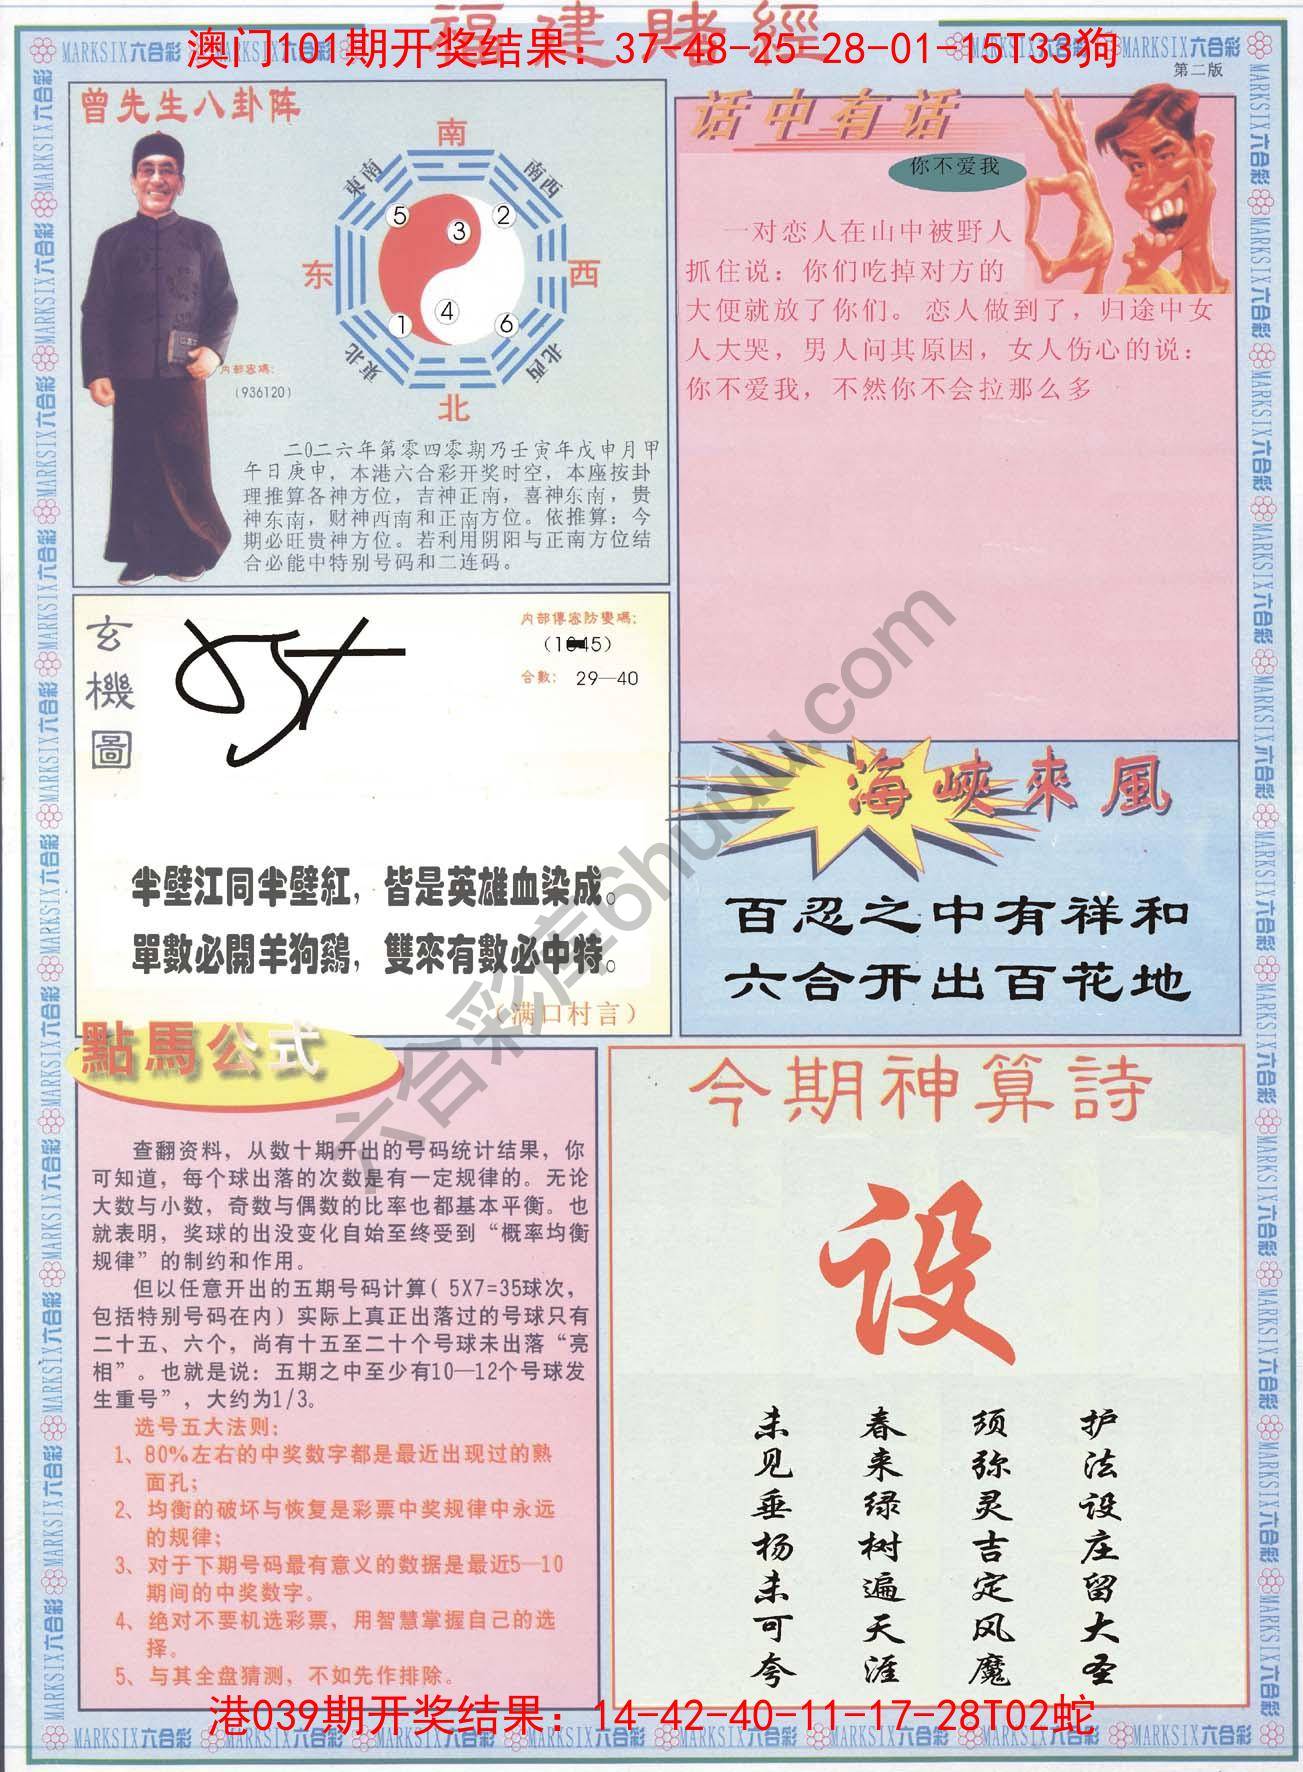 福建賭經
澳门101期开奖结果：37-48-25-28-01-15T33狗
MARKSIX六合彩
第二版
曾先生八卦阵
南
東南
南西
5
3
2
东
西
4
1
6
東北
北西
北
内部密碼：
(936120)
二〇二六年第零四零期乃壬寅年戊申月甲
午日庚申，本港六合彩开奖时空，本座按卦
理推算各神方位，吉神正南，喜神东南，贵
神东南，财神西南和正南方位。依推算：今
期必旺贵神方位。若利用阴阳与正南方位结
合必能中特别号码和二连码。
话中有话
你不爱我
一对恋人在山中被野人
抓住说：你们吃掉对方的
大便就放了你们。恋人做到了，归途中女
人大哭，男人问其原因，女人伤心的说：
你不爱我，不然你不会拉那么多
玄機圖
内部傳密防變碼：
合數： 29—40
半壁江同半壁紅，皆是英雄血染成。
單數必開羊狗鷄，雙來有數必中特。
（满口村言）
海峽來風
百忍之中有祥和
六合开出百花地
六合彩库6huuu.com
點馬公式
查翻资料，从数十期开出的号码统计结果，你
可知道，每个球出落的次数是有一定规律的。无论
大数与小数，奇数与偶数的比率也都基本平衡。也
就表明，奖球的出没变化自始至终受到“概率均衡
规律”的制约和作用。
但以任意开出的五期号码计算( 5X7=35球次，
包括特别号码在内）实际上真正出落过的号球只有
二十五、六个，尚有十五至二十个号球未出落“亮
相”。也就是说：五期之中至少有10—12个号球发
生重号”，大约为1/3。
选号五大法则：
1、80%左右的中奖数字都是最近出现过的熟
面孔；
2、均衡的破坏与恢复是彩票中奖规律中永远
的规律；
3、对于下期号码最有意义的数据是最近5—10
期间的中奖数字。
4、绝对不要机选彩票，用智慧掌握自己的选
择。
5、与其全盘猜测，不如先作排除。
今期神算詩
设
护法设庄留大圣
须弥灵吉定风魔
春来绿树遍天涯
未见垂杨未可夸
港039期开奖结果：14-42-40-11-17-28T02蛇
MARKSIX六合彩